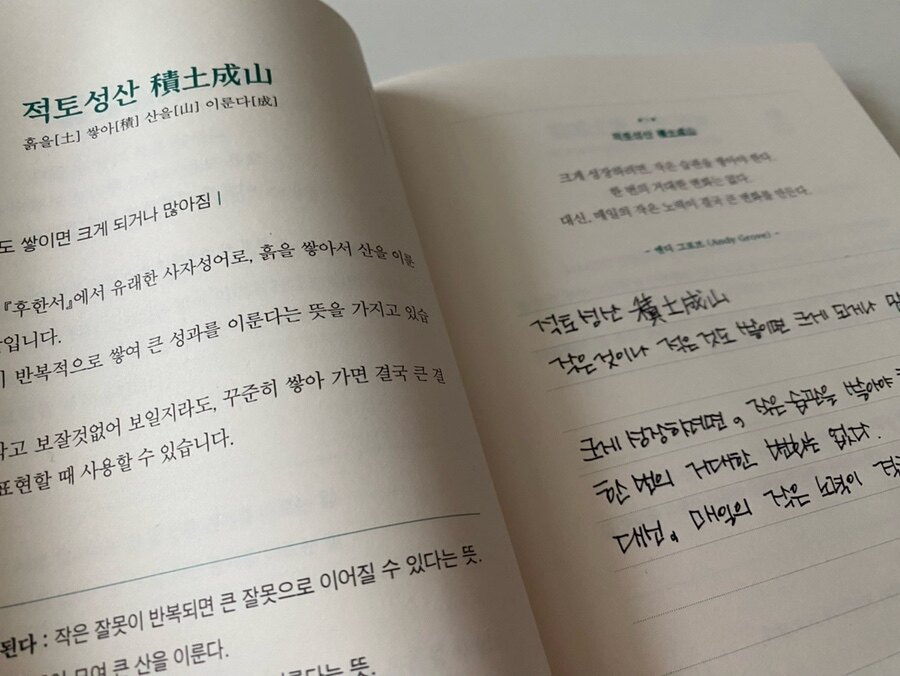 적토성산 積土成山
흙을[土] 쌓아[積] 산을[山] 이룬다[成]
도 쌓이면 크게 되거나 많아짐 |
『후한서』에서 유래한 사자성어로, 흙을 쌓아서 산을 이룬
입니다.
반복적으로 쌓여 큰 성과를 이룬다는 뜻을 가지고 있습
작고 보잘것없어 보일지라도, 꾸준히 쌓아 가면 결국 큰 결
표현할 때 사용할 수 있습니다.
된다 : 작은 잘못이 반복되면 큰 잘못으로 이어질 수 있다는 뜻.
모여 큰 산을 이룬다.
다는 뜻.
적토성산 積土成山
크게 성장하려면, 작은 습관을 쌓아야 한다.
한 번의 거대한 변화는 없다.
대신, 매일의 작은 노력이 결국 큰 변화를 만든다.
- 앤디 그로브 (Andy Grove) -
적토성산 積土成山
작은것이나 적은것도 쌓이면 크게 되거나
크게 성장하려면, 작은 습관을 쌓아야
한 번의 거대한 변화는 없다.
대신, 매일의 작은 노력이